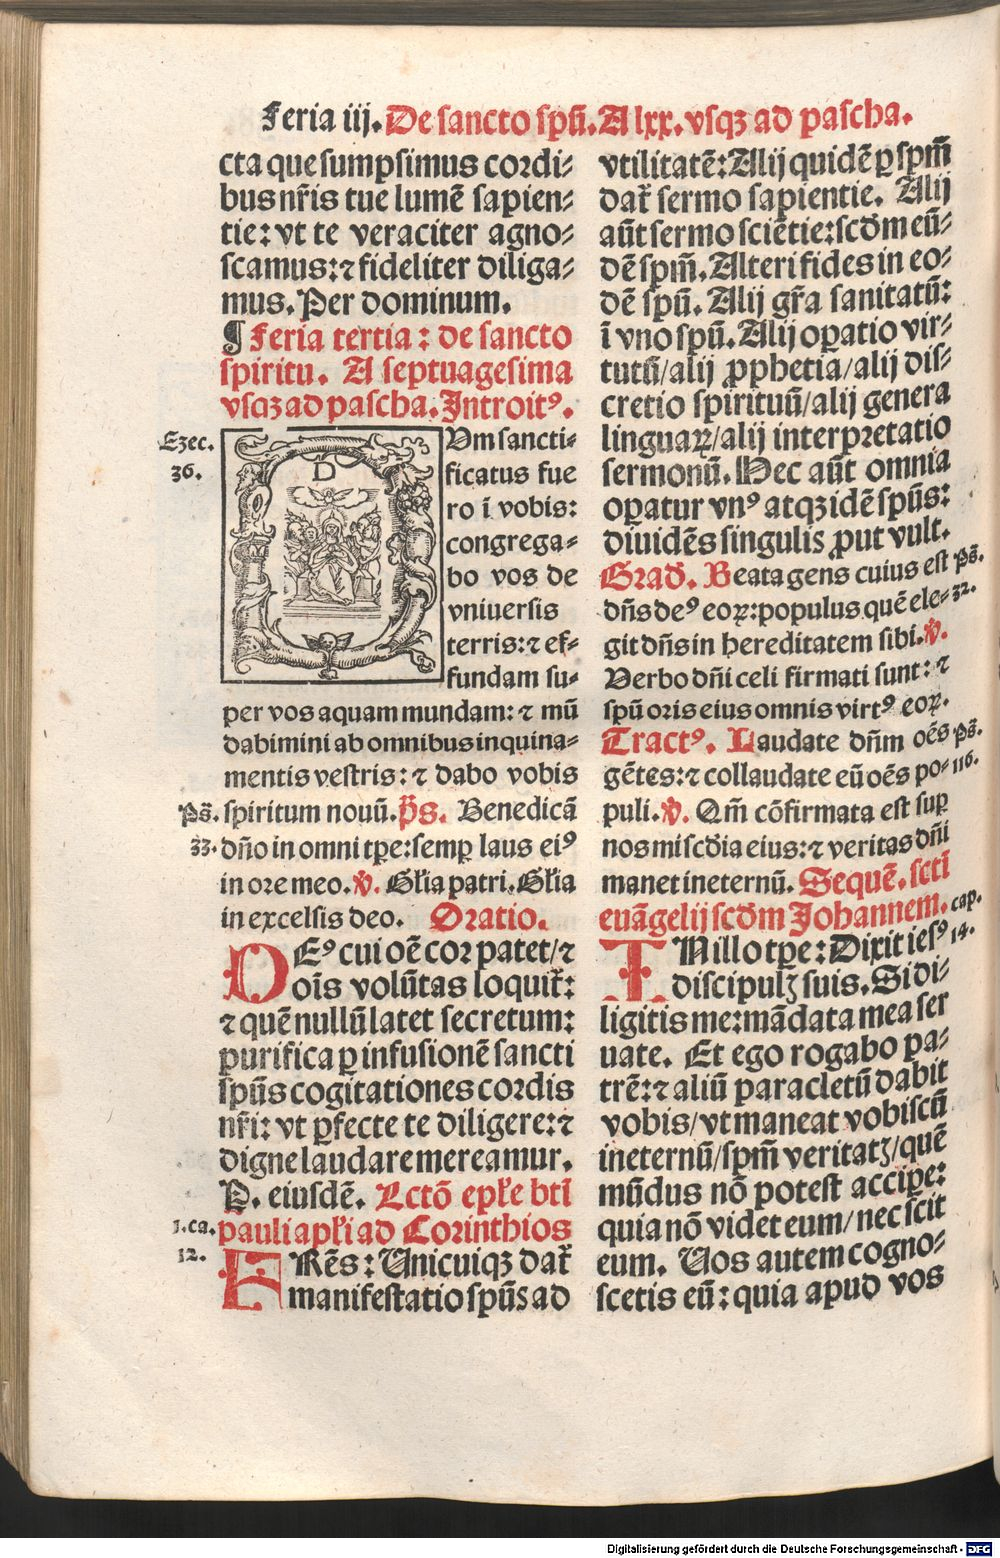 Feria iij. De sancto spũ. A lxx. vsqꝫ ad pascha.
cta que sumpsimus cordi⸗
bus nr̃is tue lumẽ sapien⸗
tie: vt te veraciter agno⸗
scamus: ⁊ fideliter diliga⸗
mus. Per dominum.
¶ Feria tertia: de sancto
spiritu. A septuagesima
vsqꝫ ad pascha. Introitꝰ.
Ezec.
36.
D
Vm sancti⸗
ficatus fue
ro ĩ vobis:
congrega⸗
bo vos de
vniuersis
terris: ⁊ ef⸗
fundam su⸗
per vos aquam mundam: ⁊ mũ
dabimini ab omnibus inquina⸗
mentis vestris: ⁊ dabo vobis
Ps̃. spiritum nouũ. p̃s. Benedicã
33. dño in omni tꝑe: semꝑ laus eiꝰ
in ore meo. ℣. Gl̃ia patri. Gl̃ia
in excelsis deo. Oratio.
DEꝰ cui oẽ cor patet/ ⁊
oĩs volũtas loquit̃:
⁊ quẽ nullũ latet secretum:
purifica ꝑ infusionẽ sancti
spũs cogitationes cordis
nr̃i: vt ꝑfecte te diligere: ⁊
digne laudare mereamur.
P. eiusdẽ. Lctõ epl̃e bti
1. ca. pauli apl̃i ad Corinthios
12. FRẽs: Unicuiqꝫ dat̃
manifestatio spũs ad
vtilitatẽ: Alij quidẽ ꝑ spm̃
dat̃ sermo sapientie. Alij
aũt sermo sciẽtie: scd̃m eũ⸗
dẽ spm̃. Alteri fides in eo⸗
dẽ spũ. Alij gr̃a sanitatũ:
ĩ vno spũ. Alij oꝑatio vir⸗
tutũ/ alij ꝓphetia/ alij dis⸗
cretio spirituũ/ alij genera
linguaꝝ/ alij interpretatio
sermonũ. Hec aũt omnia
oꝑatur vnꝰ atqꝫ idẽ spũs:
diuidẽs singulis ꝓut vult.
Grad̃. Beata gens cuius est Ps̃.
dñs deꝰ eoꝝ: populus quẽ ele⸗ 32.
git dñs in hereditatem sibi. ℣.
Verbo dñi celi firmati sunt: ⁊
spũ oris eius omnis virtꝰ eoꝝ.
Tractꝰ. Laudate dñm oẽs Ps̃.
gẽtes: ⁊ collaudate eũ oẽs po⸗ 116.
puli. ℣. Qm̃ cõfirmata est suꝑ
nos mis̃cdia eius: ⁊ veritas dñi
manet in eternũ. Sequẽ. scti
euãgelij scd̃m Johannem. cap.
IN illo tꝑe: Dixit iesꝰ 14.
discipulꝭ suis. Si di⸗
ligitis me: mãdata mea ser
uate. Et ego rogabo pa⸗
trẽ: ⁊ aliũ paracletũ dabit
vobis/ vt maneat vobiscũ
in eternũ/ spm̃ veritatꝭ/ quẽ
mũdus nõ potest acciꝑe:
quia nõ videt eum/ nec scit
eum. Vos autem cogno⸗
scetis eũ: quia apud vos
Digitalisierung gefördert durch die Deutsche Forschungsgemeinschaft - DFG